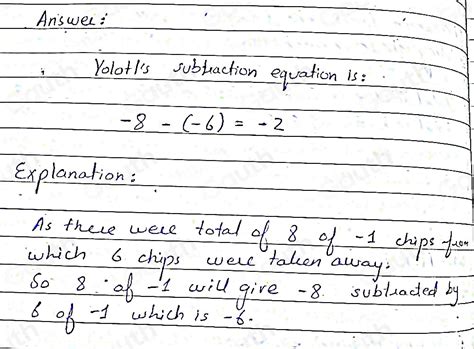 Answer:
Yolotl's subtraction equation is:
-8 - (-6) = -2
Explanation:
As there were total of 8 of -1 chips from
which 6 chips were taken away.
So 8 of -1 will give -8 subtracted by
6 of -1 which is -6.